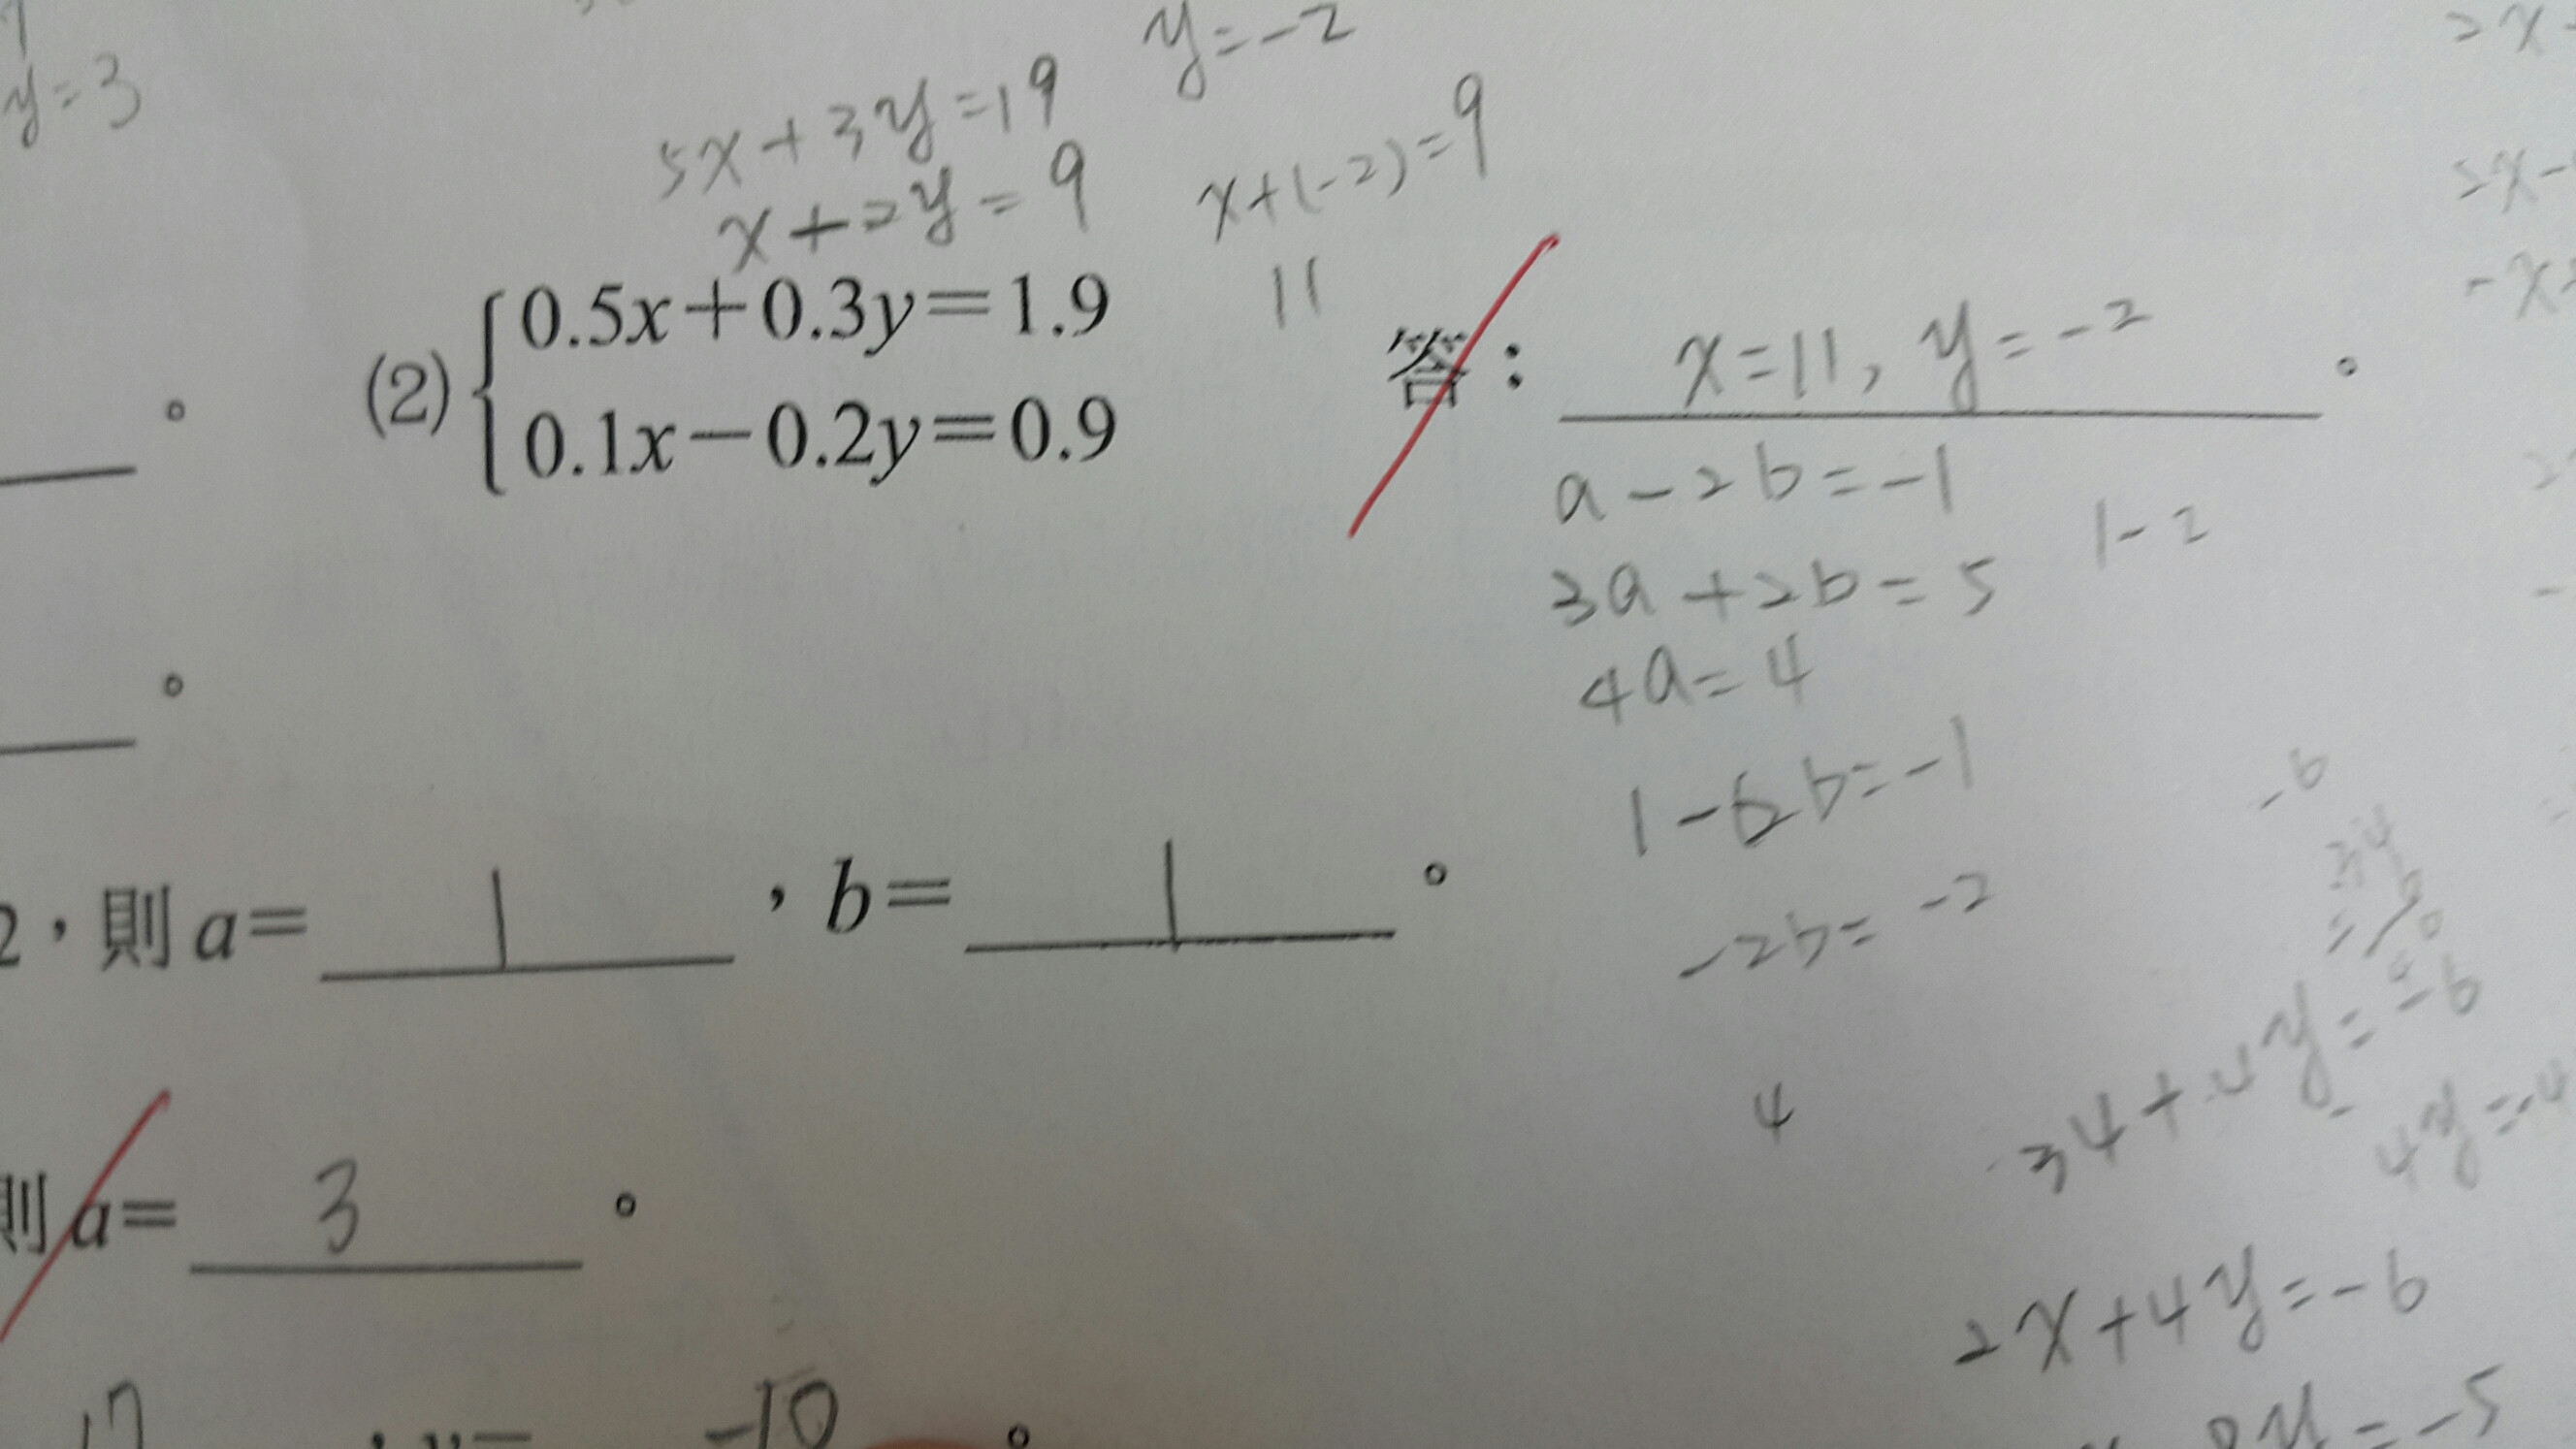 y=3
5x+3y=19
x+2y=9
y=-2
x+(-2)=9
11
(2) 0.5x+0.3y=1.9
0.1x-0.2y=0.9
答： x=11, y=-2 。
。
a-2b=-1
3a+2b=5
1-2
4a=4
1-2b=-1
-2b=-2
。
2，則a= 1 ，b= 1 。
則a= 3 。
4
-6
34+4y=-6
4y=-4
2x+4y=-6
17
-10 。
y=-5
2x